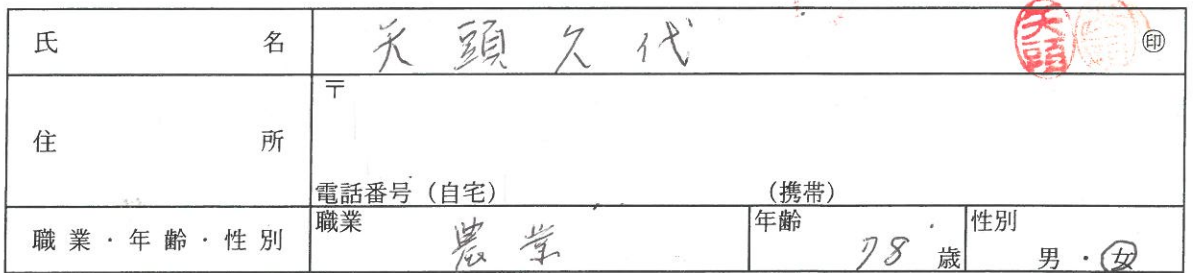 氏 名 天頭久代 天頭 ㊞
住 所 〒
電話番号(自宅) (携帯)
職業・年齢・性別 職業 農業 年齢 78歳 性別 男・女